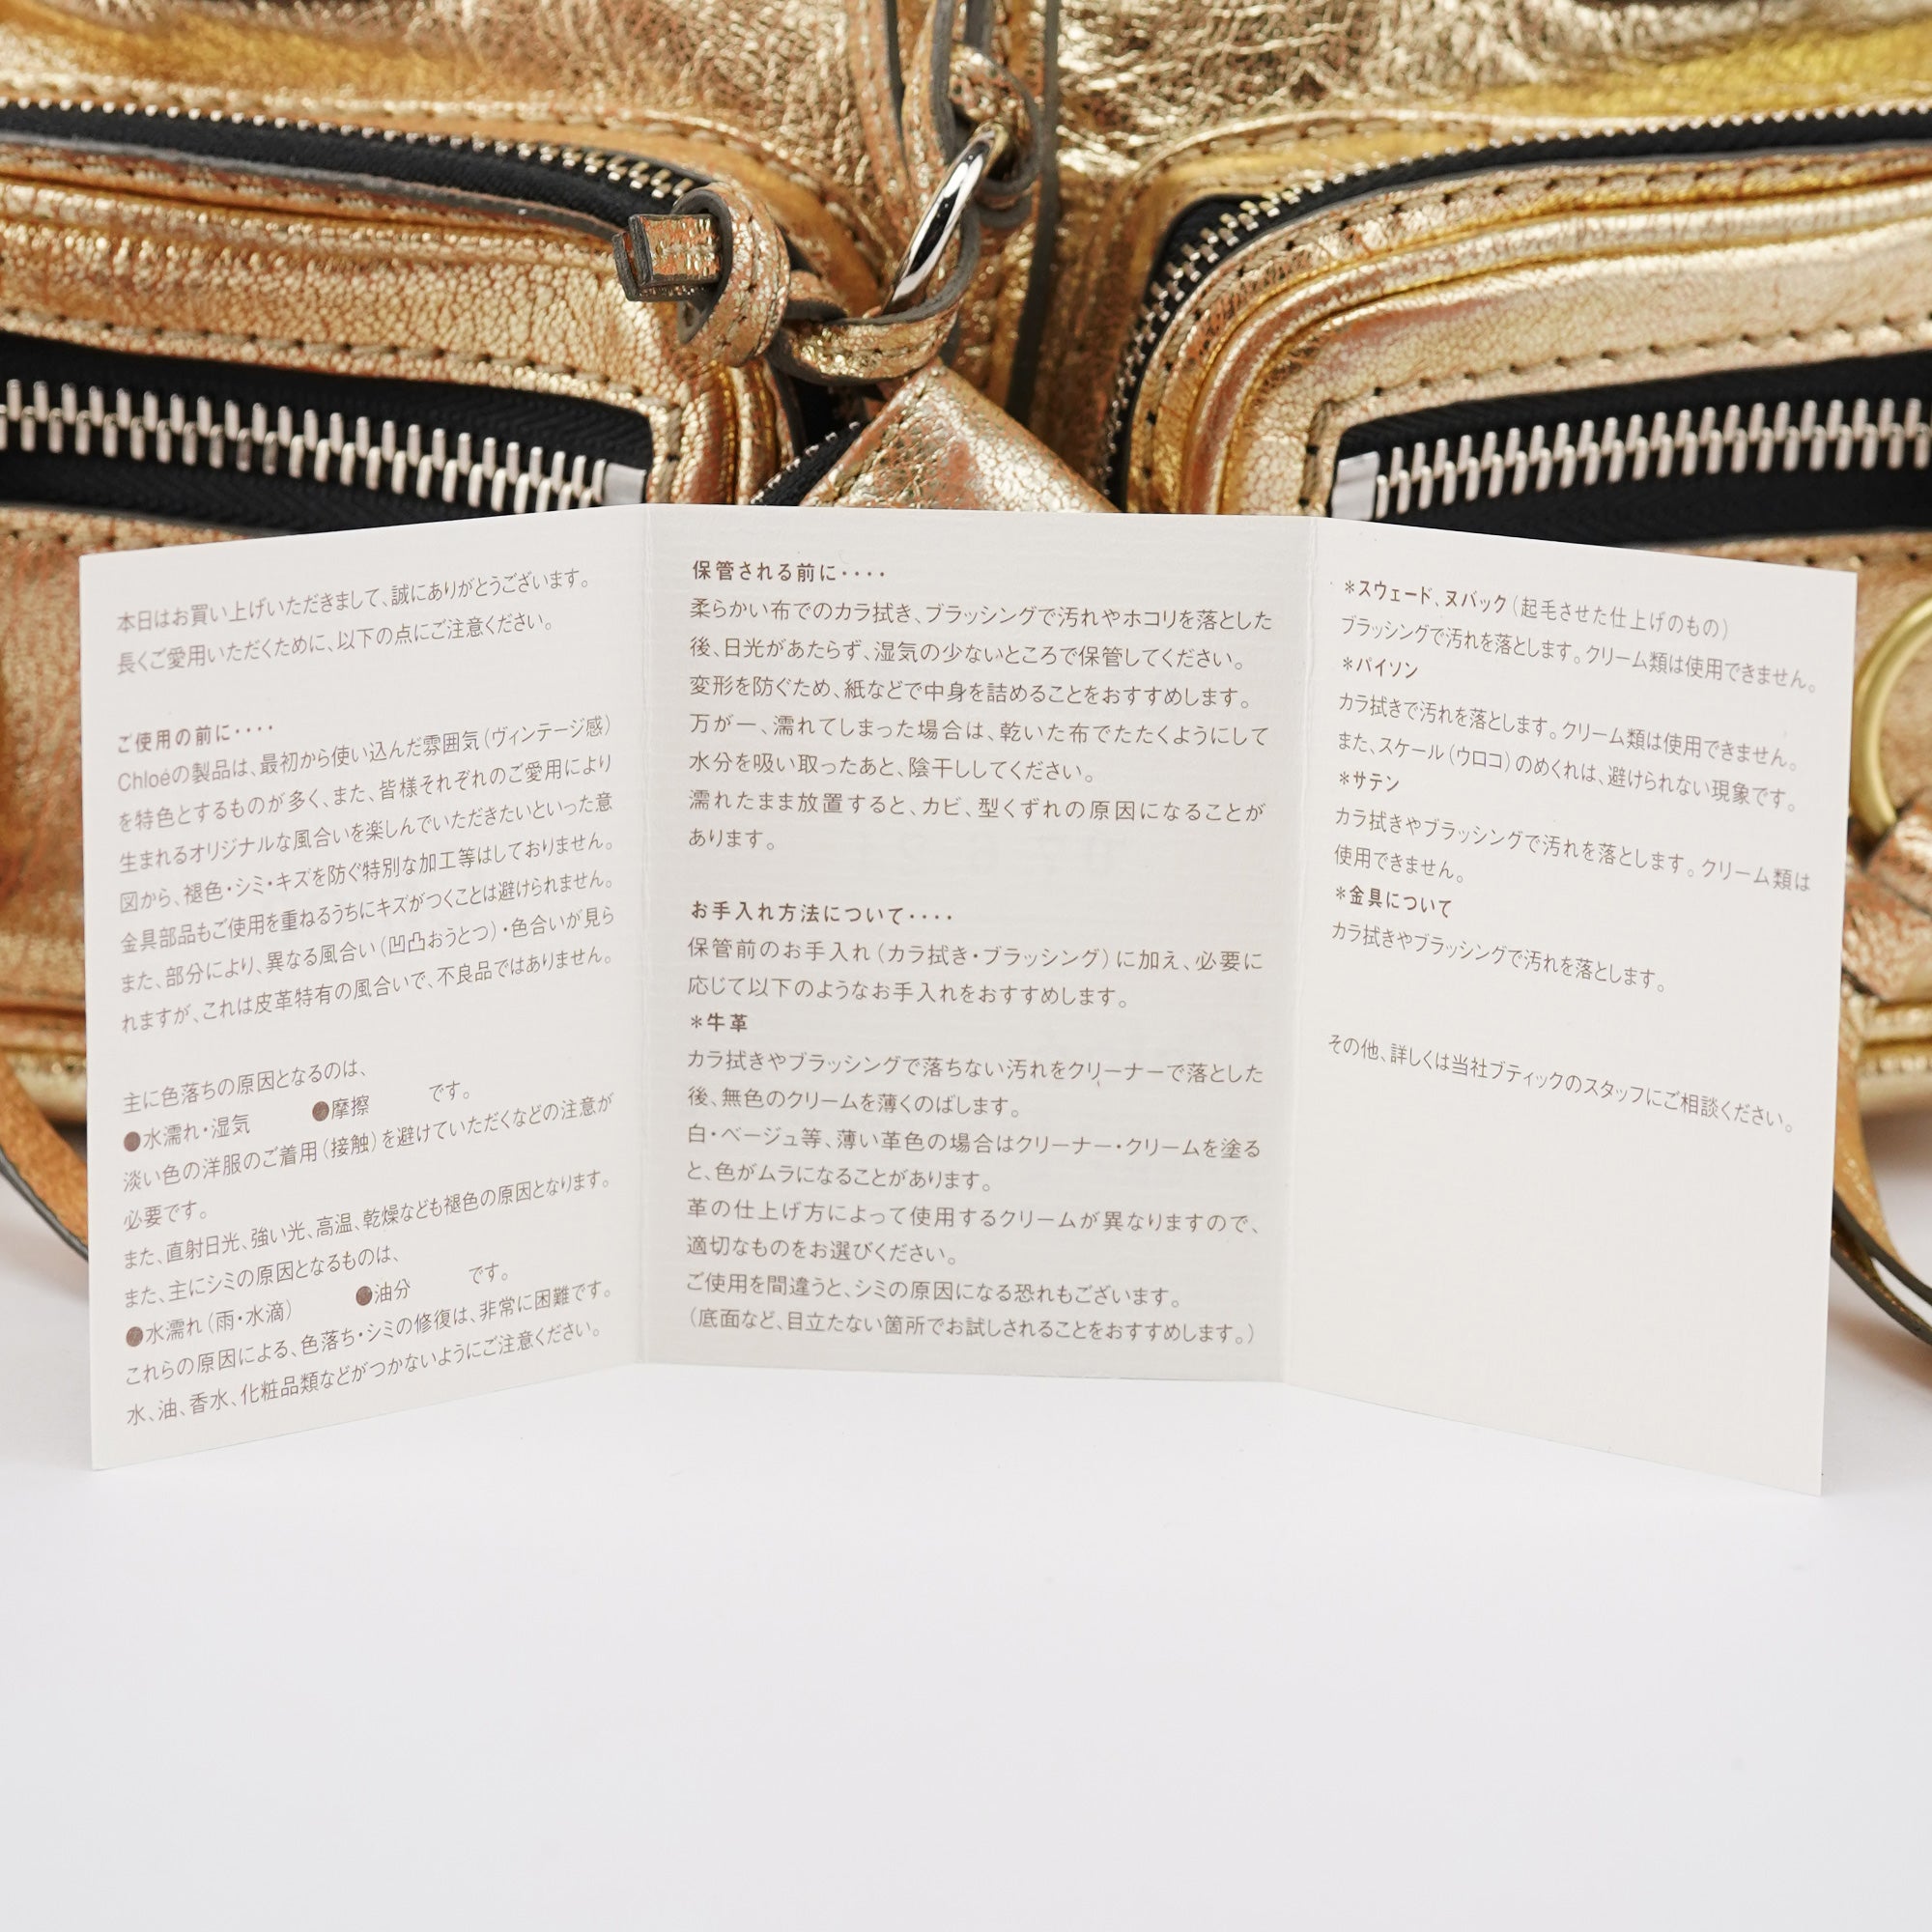 本日はお買い上げいただきまして、誠にありがとうございます。
長くご愛用いただくために、以下の点にご注意ください。
ご使用の前に････
Chloéの製品は、最初から使い込んだ雰囲気（ヴィンテージ感）
を特色とするものが多く、また、皆様それぞれのご愛用により
生まれるオリジナルな風合いを楽しんでいただきたいといった意
図から、褪色・シミ・キズを防ぐ特別な加工等はしておりません。
金具部品もご使用を重ねるうちにキズがつくことは避けられません。
また、部分により、異なる風合い（凹凸おうとつ）・色合いが見ら
れますが、これは皮革特有の風合いで、不良品ではありません。
主に色落ちの原因となるのは、
●水濡れ・湿気　●摩擦　です。
淡い色の洋服のご着用（接触）を避けていただくなどの注意が
必要です。
また、直射日光、強い光、高温、乾燥なども褪色の原因となります。
また、主にシミの原因となるものは、
●水濡れ（雨・水滴）　●油分　です。
これらの原因による、色落ち・シミの修復は、非常に困難です。
水、油、香水、化粧品類などがつかないようにご注意ください。
保管される前に････
柔らかい布でのカラ拭き、ブラッシングで汚れやホコリを落とした
後、日光があたらず、湿気の少ないところで保管してください。
変形を防ぐため、紙などで中身を詰めることをおすすめします。
万が一、濡れてしまった場合は、乾いた布でたたくようにして
水分を吸い取ったあと、陰干ししてください。
濡れたまま放置すると、カビ、型くずれの原因になることが
あります。
お手入れ方法について････
保管前のお手入れ（カラ拭き・ブラッシング）に加え、必要に
応じて以下のようなお手入れをおすすめします。
＊牛革
カラ拭きやブラッシングで落ちない汚れをクリーナーで落とした
後、無色のクリームを薄くのばします。
白・ベージュ等、薄い革色の場合はクリーナー・クリームを塗る
と、色がムラになることがあります。
革の仕上げ方によって使用するクリームが異なりますので、
適切なものをお選びください。
ご使用を間違うと、シミの原因になる恐れもございます。
（底面など、目立たない箇所でお試しされることをおすすめします。）
＊スウェード、ヌバック（起毛させた仕上げのもの）
ブラッシングで汚れを落とします。クリーム類は使用できません。
＊パイソン
カラ拭きで汚れを落とします。クリーム類は使用できません。
また、スケール（ウロコ）のめくれは、避けられない現象です。
＊サテン
カラ拭きやブラッシングで汚れを落とします。クリーム類は
使用できません。
＊金具について
カラ拭きやブラッシングで汚れを落とします。
その他、詳しくは当社ブティックのスタッフにご相談ください。